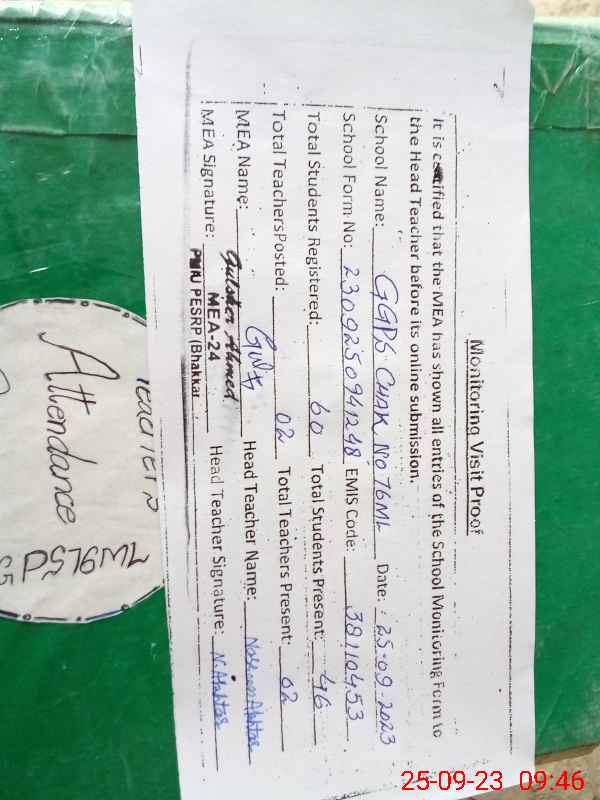 Monitoring Visit Proof
It is certified that the MEA has shown all entries of the School Monitoring Form to
the Head Teacher before its online submission.
School Name: GGPS CHAK NO 76ML Date: 25-09-2023
School Form No: 2309250941248 EMIS Code: 38110453
Total Students Registered: 60 Total Students Present: 46
Total TeachersPosted: 02 Total Teachers Present: 02
MEA Name: Head Teacher Name: Akhtar
MEA Signature: Gulsher Ahmed Head Teacher Signature: N. Akhtar
MEA-24
PMIU PESRP (Bhakkar
Teacher's
Attendance
PS76ML
25-09-23 09:46